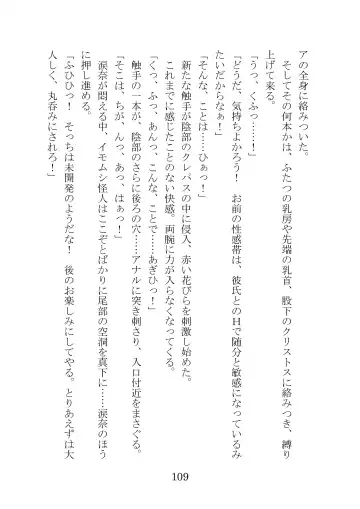 アの全身に絡みついた。
　そしてその何本かは、ふたつの乳房や先端の乳首、股下のクリストスに絡みつき、縛り
上げて来る。
「うっ、くふっ……！」
「どうだ、気持ちよかろう！　お前の性感帯は、彼氏とのHで随分と敏感になっているみ
たいだからなぁ！」
「そんな、ことは……ひぁっ！」
　新たな触手が陰部のクレバスの中に侵入、赤い花びらを刺激し始めた。
　これまでに感じたことのない快感。両腕に力が入らなくなってくる。
「くっ、ふっ、あんっ、こんな、ことで……あぎひっ！」
　触手の一本が、陰部のさらに後ろの穴……アナルに突き刺さり、入口付近をまさぐる。
「そこは、ちが、んっ、あっ、はぁっ！」
　涙奈が悶える中、イモムシ怪人はここぞとばかりに尾部の空洞を真下に……涙奈のほう
に押し進める。
「ふひひっ！　そっちは未開発のようだな！　後のお楽しみにしてやる。とりあえずは大
人しく、丸呑みにされろ！」
109